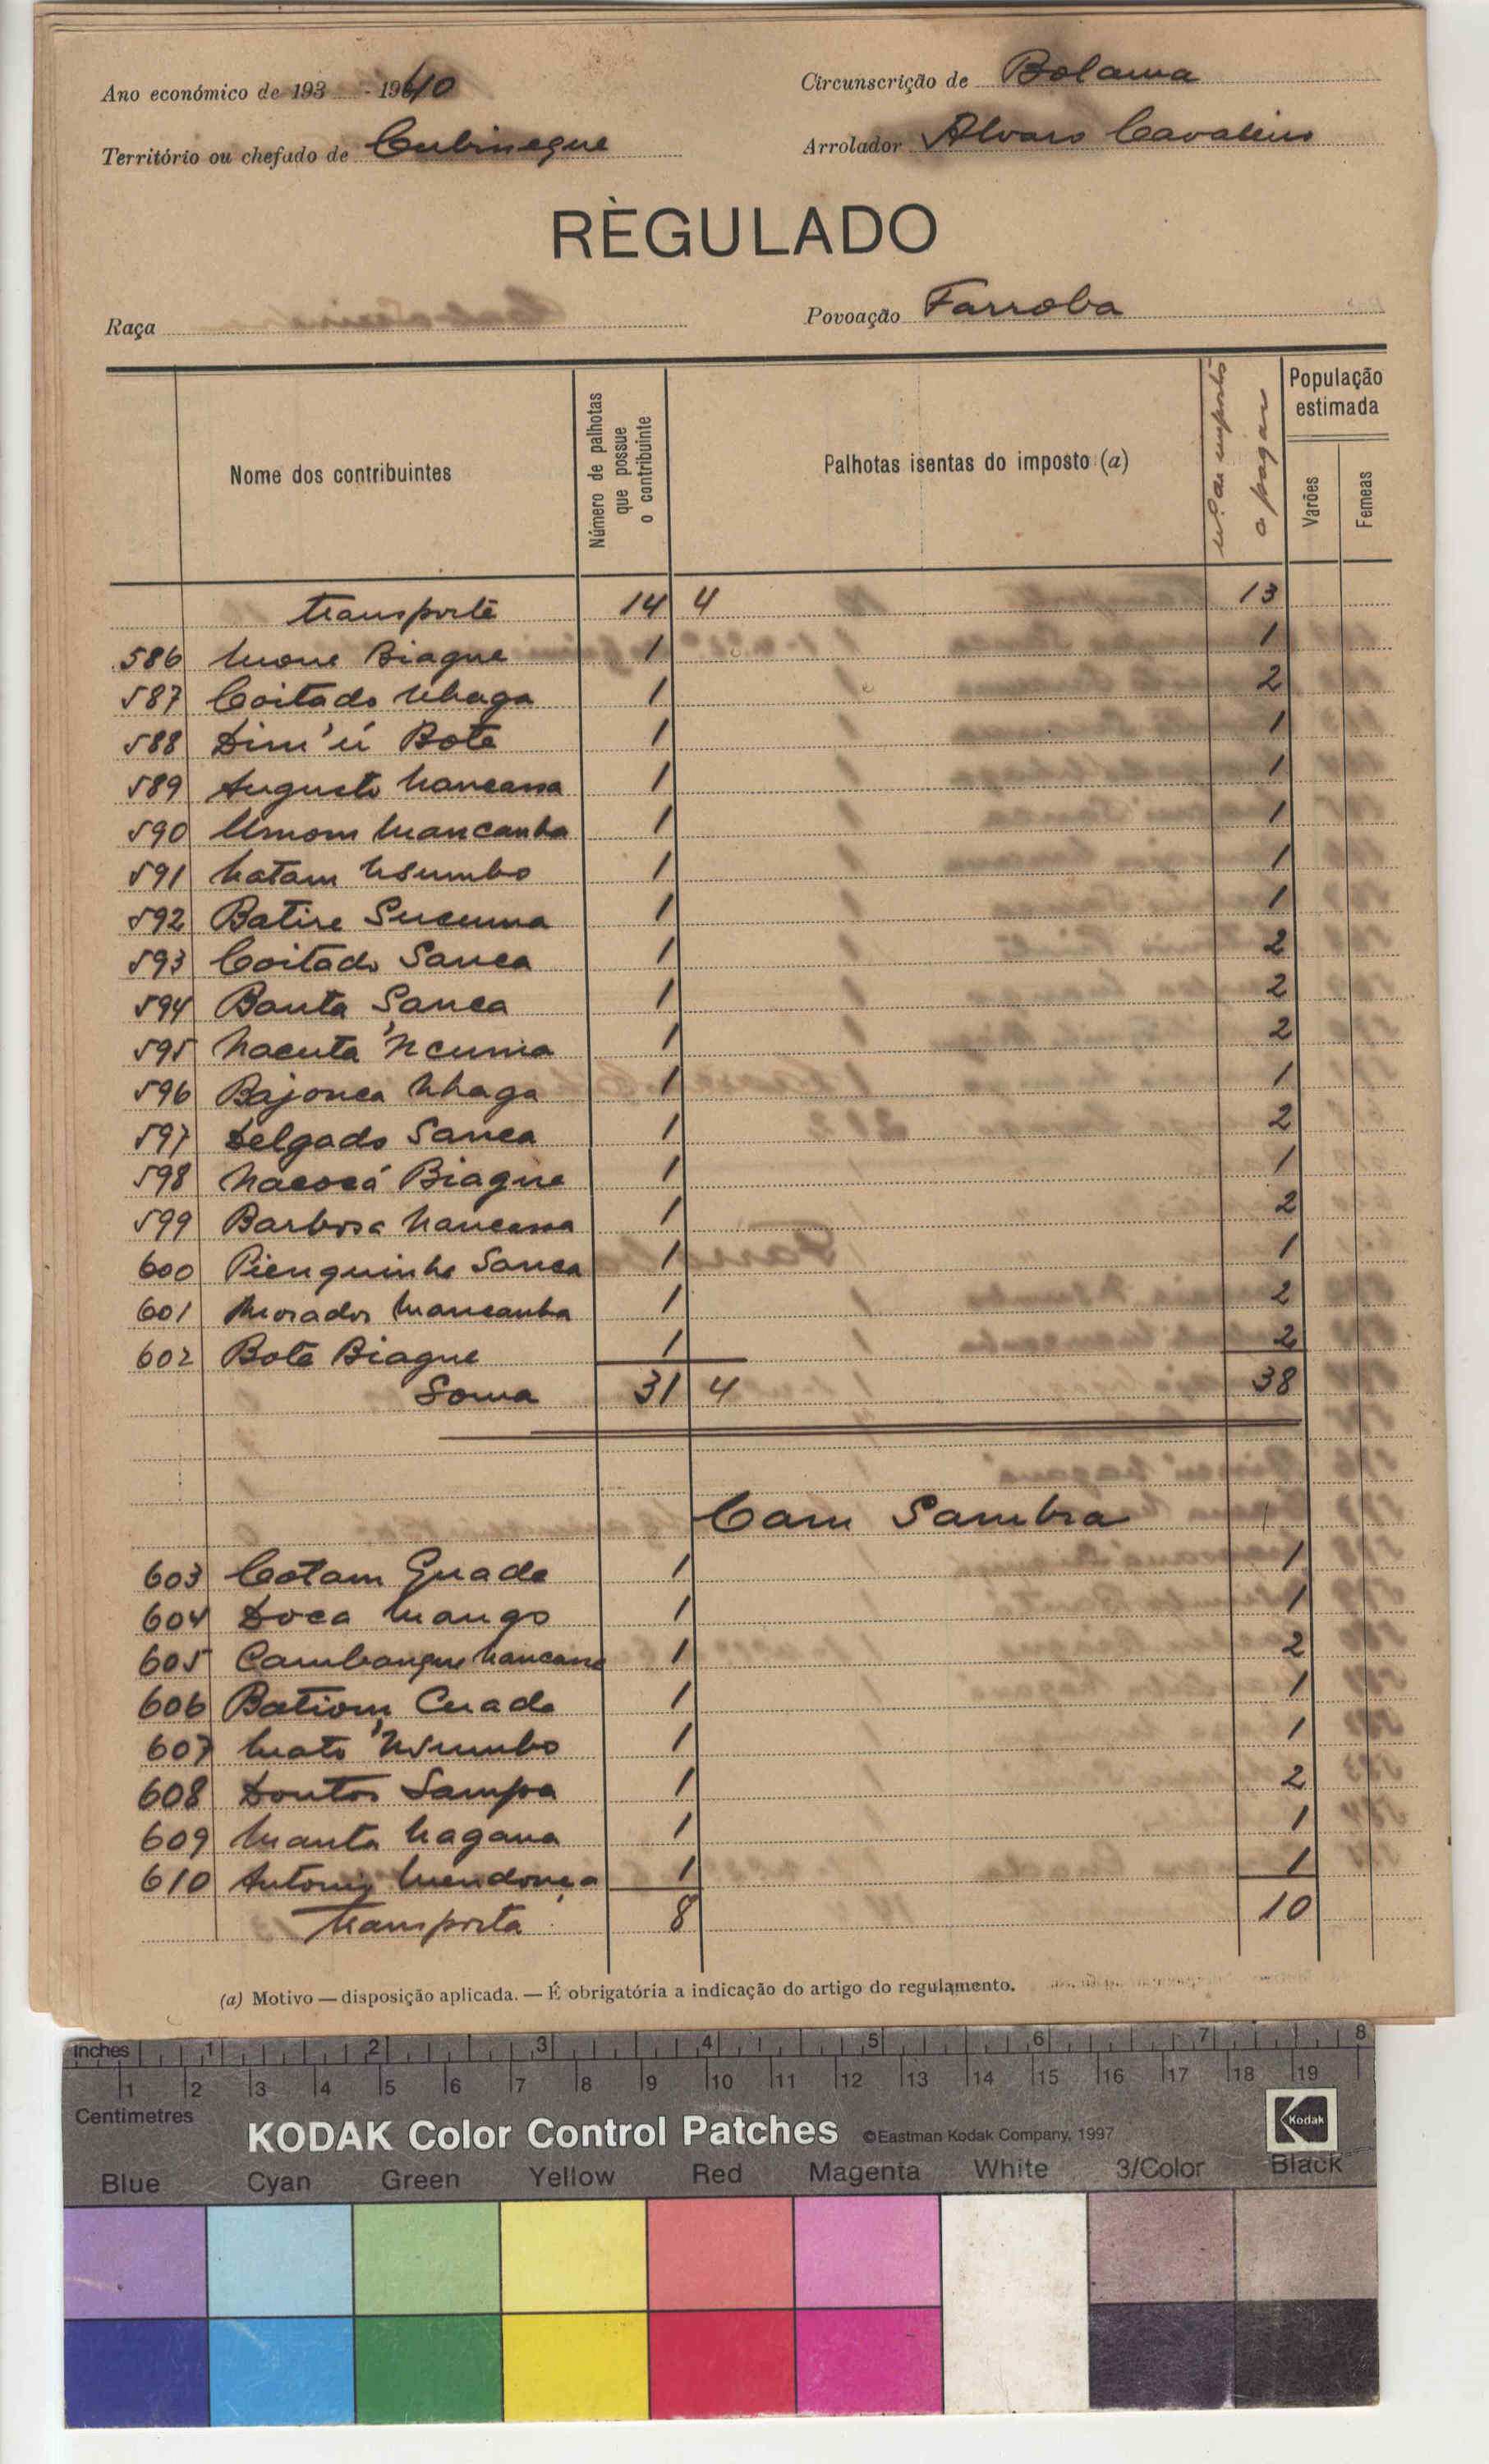 Ano económico de 193 - 1940
Circunscrição de Bolama
Território ou chefado de Cubisseque
Arrolador Alvaro Cavaleiro
RÈGULADO
Raça
Povoação Farroba
Nome dos contribuintes
Número de palhotas que possue o contribuinte
Palhotas isentas do imposto (a)
nº. de impostos a pagar
População estimada
Varões
Femeas
transporte 14 4 13
586 Biague 1 1
587 Coitado Nhaga 1 2
588 Dim'ú Bote 1 1
589 Augusto Nancassa 1 1
590 Mancanha 1 1
591 Natam Nsumbo 1 1
592 Batire Sucuma 1 1
593 Coitado Sanca 1 2
594 Banta Sanca 1 2
595 Nacuta 'Ncuma 1 2
596 Bajonca Nhaga 1 1
597 Delgado Sanca 1 2
598 Nacocá Biague 1 1
599 Barbosa Nancassa 1 2
600 Pienguinho Sanca 1 1
601 Morador Mancanha 1 2
602 Bote Biague 1 2
Soma 31 4 38
Cam Sambra
603 Cotam Quade 1 1
604 Doca Mango 1 1
605 Cambangue Nancassa 1 2
606 Batiom Cuade 1 1
607 Mato 'Nsumbo 1 1
608 Doutor Sampa 1 2
609 Manta Nagana 1 1
610 Antonio Mendonça 1 1
Transporta 8 10
(a) Motivo — disposição aplicada. — É obrigatória a indicação do artigo do regulamento.
inches 1 2 3 4 5 6 7 8
1 2 3 4 5 6 7 8 9 10 11 12 13 14 15 16 17 18 19
Centimetres
KODAK Color Control Patches ©Eastman Kodak Company, 1997 Kodak
Blue Cyan Green Yellow Red Magenta White 3/Color Black